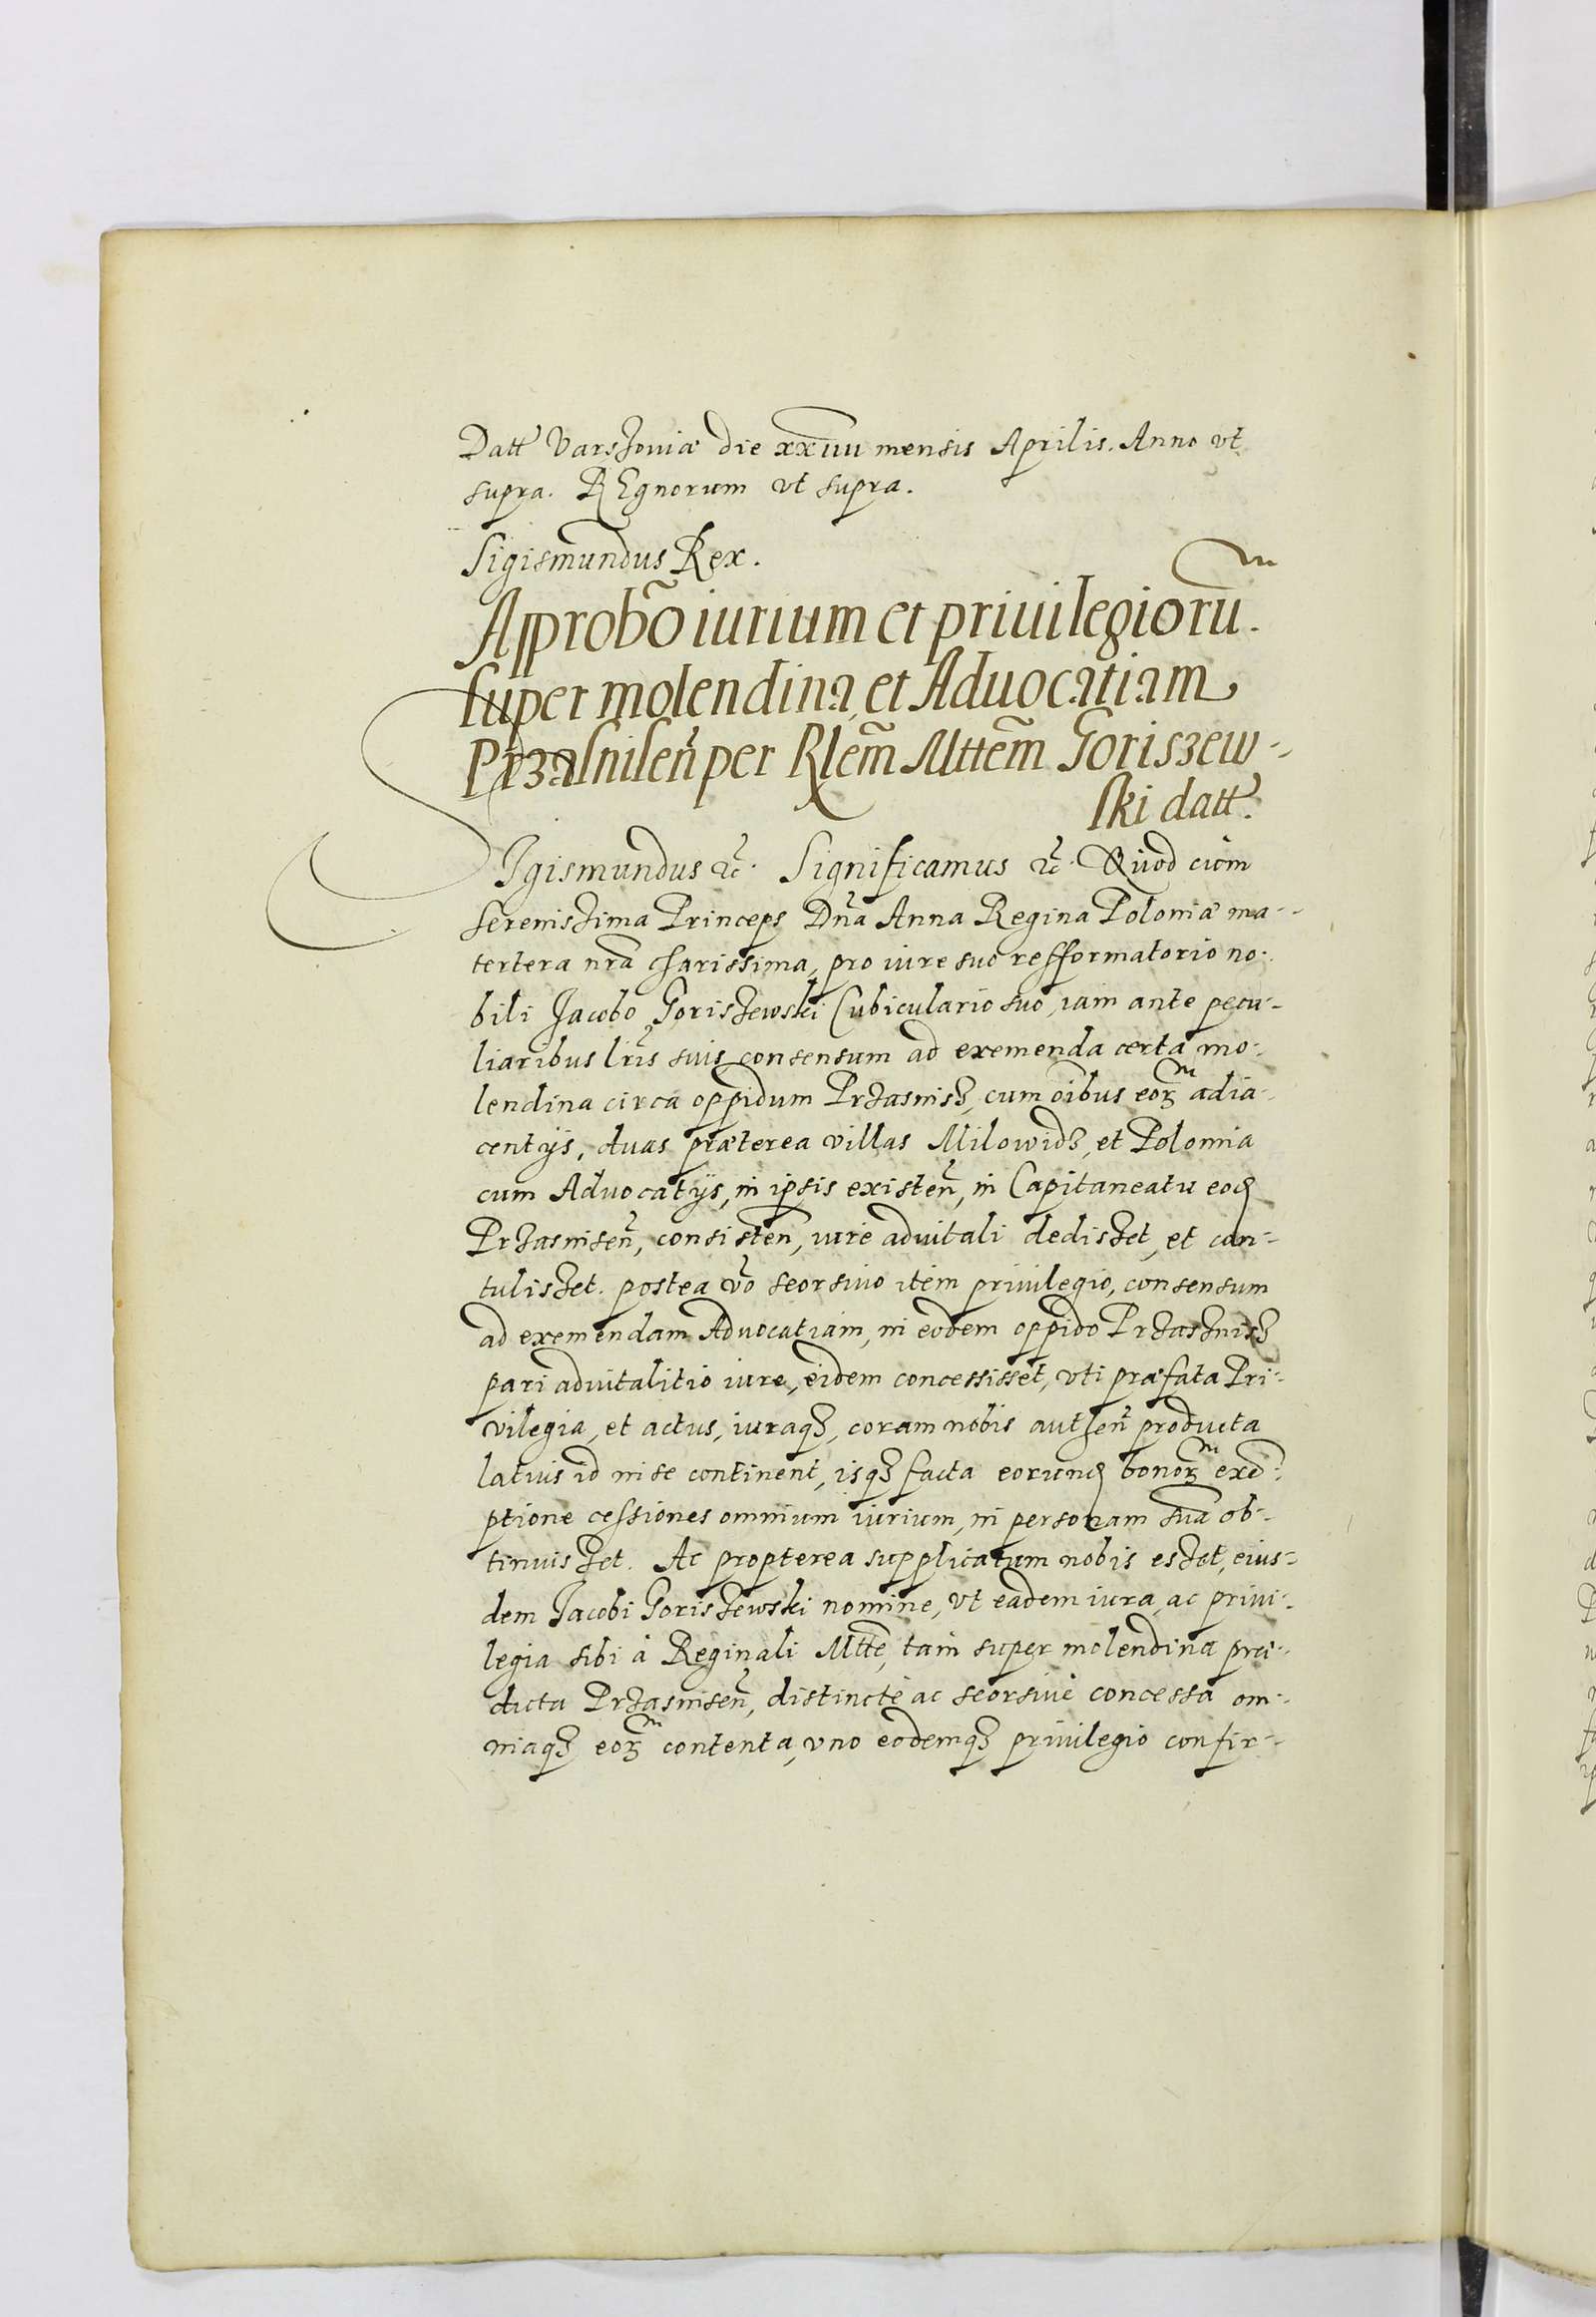 Datt Varszouiæ die xxuiii mensis Aprilis. Anno vt
supra. REgnorum vt supra.
Sigismundus Rex.
Approbõ iurium et priuilegiorũ.
super molendina et Aduocatiam
Przasnisen̄ per Rlem̃ Mttem̃ Goriszew-
ski datt.
SIgismundus etc. Significamus etc. Quod cum
serenissima Princeps Dnã Anna Regina Poloniæ ma-
tertera nrã charissima, pro iure suo refformatorio no-
bili Jacobo Goriszewski Cubiculario suo, iam ante pecu-
liaribus lrĩs suis consensum ad exemenda certa mo-
lendina circa oppidum Przasnisz, cum oĩbus eorȝ adia-
centijs, duas præterea villas Milowidz, et Polonia
cum Aduocatijs, in ipsis existen̄, in Capitaneatu eod
Przasnisen̄, consisten̄, iure aduitali dediszet, et con-
tuliszet. postea vo᷒ seorsiuo item priuilegio, consensum
ad exemendam Aduocatiam, in eodem oppido Przasznisz
pari aduitalitio iure, eidem concessisset, vti præfata Pri-
vilegia, et actus, iuraqȝ, coram nobis authen̄ producta
latius id in se continent, isqȝ facta eorund bonorȝ exe-
ptione cessiones omnium iurium, in personam suã ob-
tinuiszet. Ac propterea supplicatum nobis eszet, eius-
dem Jacobi Goriszewski nomine, vt eadem iura, ac priui-
legia sibi à Reginali Mtte, tam super molendina præ-
dicta Przasnisen̄, distinctè ac seorsiuè concessa om-
niaqȝ eorȝ contenta, vno eodemqȝ priuilegio confir-